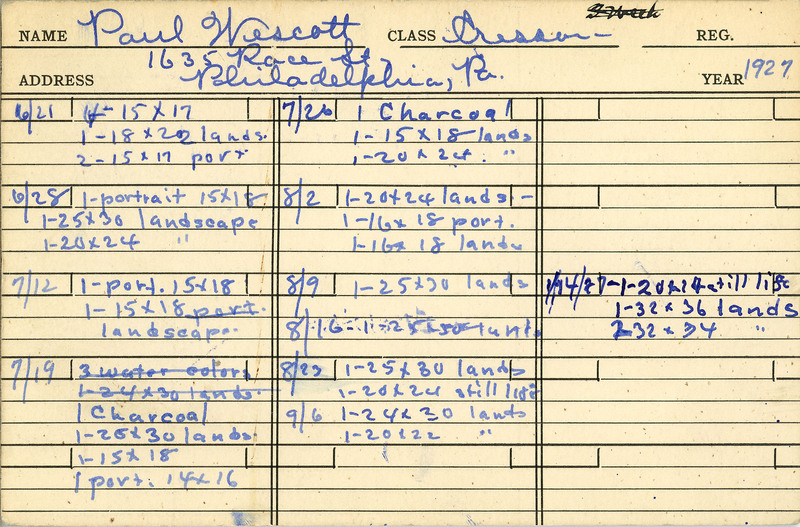 3 Week
NAME Paul Wescott CLASS Cresson- REG.
1635 Race St,
ADDRESS Philadelphia, Pa. YEAR 1927
6/21 4-15x17
1-18x20 lands.
2-15x17 port
6/28 1-portrait 15x18
1-25x30 landscape
1-20x24 "
7/12 1-port. 15x18
1-15x18 port.
landscape.
7/19 3 water colors
1-24x30 lands.
1 Charcoal
1-25x30 lands
1-15x18
1 port. 14x16
7/26 1 Charcoal
1-15x18 lands
1-20x24. "
8/2 1-20x24 lands-
1-16x18 port.
1-16x18 lands
8/9 1-25x30 lands
8/16-1-25x30 lands
8/23 1-25x30 lands
1-20x24 still life
9/6 1-24x30 lands
1-20x22 "
1/14/27-1-20x24 still life
1-32x36 lands
2-32x34 "